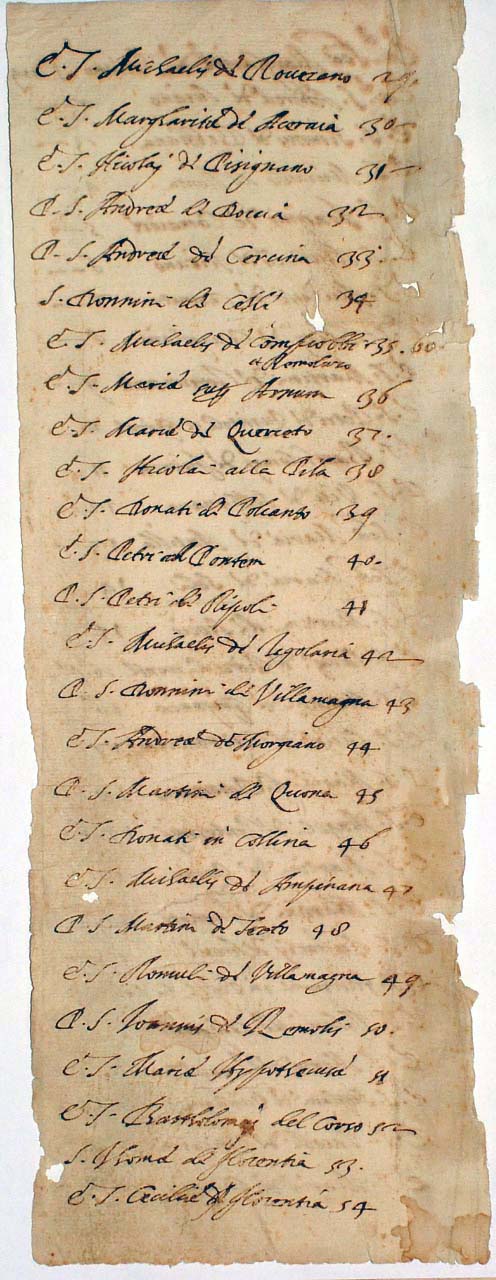 E. S. Michaelis de Rovezano 29.
E. S. Margharitæ de Aceraia 30
E. S. Nicolaj de Pisignano 31
P. S. Andreæ de Doccia 32
P. S. Andreæ de Cercina 33.
S. Donnini de Celle 34
E. S. Michaelis de 35. 60
et Romoluzo
E. S. Mariæ sup Arnum 36
E. S. Mariæ de Querceto 37.
E. S. Nicolai alla Pila 38
E. S. Donati de Polcanto 39
E. S. Petri ad Pontem 40.
P. S. Petri de Ripoli 41
E. S. Michaelis de Legolaria 42
P. S. Donnini de Villamagna 43
E. S. Andreæ de Morgiano 44
P. S. Martini de Quona 45
E. S. Donati in Collina 46
E. S. Michaelis de Ampinana 47
P. S. Martini de Sexto 48
E. S. Romuli de Villamagna 49.
P. S. Ioannis de Remolis 50.
E. S. Mariæ 51
E. S. Bartholomej del Corso 52
S. Thomæ de Florentia 53.
E. S. Ceciliæ de Florentia 54